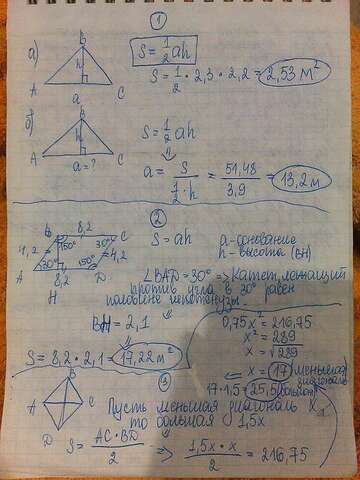 1
а)
B
h
A
a
C
S = 1/2 ah
S = 1/2 · 2,3 · 2,2 = 2,53 м²
б)
B
h
A
a = ?
C
S = 1/2 ah
a = S / (1/2 · h) = 51,48 / 3,9 = 13,2 м
2
B 8,2 C
150° 30°
4,2 4,2
30° 150°
A 8,2 D
H
S = ah
a - основание
h - высота (BH)
∠BAD = 30° => Катет, лежащий
против угла в 30° равен
половине гипотенузы.
BH = 2,1
S = 8,2 · 2,1 = 17,22 м²
3
B
A C
D
Пусть меньшая диагональ x,
то большая 1,5x
S = AC · BD / 2 => 1,5x · x / 2 = 216,75
0,75x² = 216,75
x² = 289
x = √289
x = 17 меньшая диагональ
17 · 1,5 = 25,5